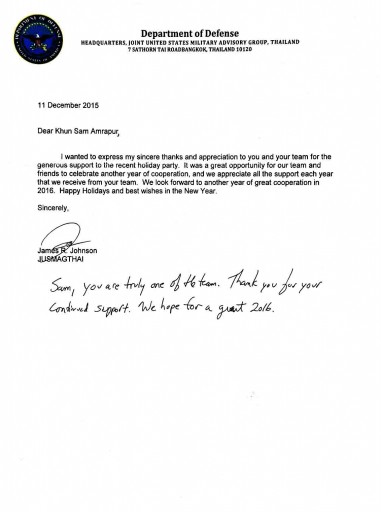 Department of Defense
HEADQUARTERS, JOINT UNITED STATES MILITARY ADVISORY GROUP, THAILAND
7 SATHORN TAI ROADBANGKOK, THAILAND 10120
11 December 2015
Dear Khun Sam Amrapur,
I wanted to express my sincere thanks and appreciation to you and your team for the
generous support to the recent holiday party. It was a great opportunity for our team and
friends to celebrate another year of cooperation, and we appreciate all the support each year
that we receive from your team. We look forward to another year of great cooperation in
2016. Happy Holidays and best wishes in the New Year.
Sincerely,
James R. Johnson
JUSMAGTHAI
Sam, you are truly one of the team. Thank you for your
continued support. We hope for a great 2016.